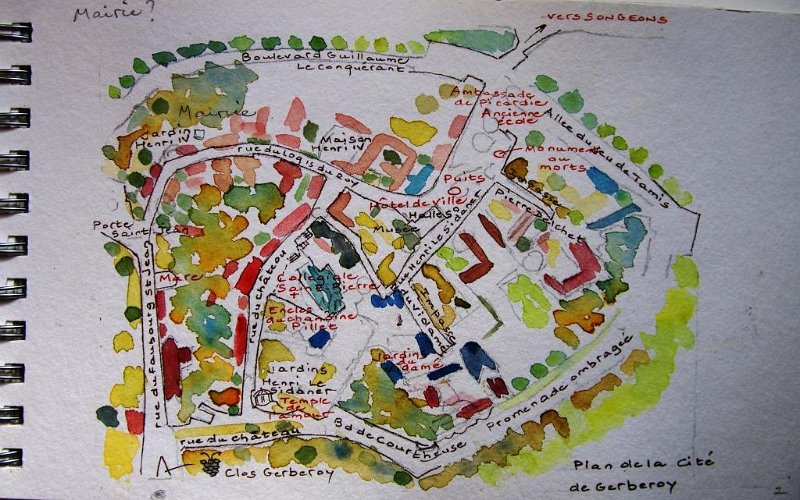 Mairie?
vers SONGEONS
Boulevard Guillaume
Le conquérant
Ambassade
de Picardie
Ancienne
école
Allée du Jeu de Tamis
Mairie
Jardin
Henri IV
Maison
Henri IV
Monument
aux
morts
rue du Logis du Roy
Puits
Impasse
Pierre Dochet
Hôtel de Ville
Halles
Musée
Porte
Saint Jean
rue Henri Le Sidaner
Mare
rue du château
Collégiale
Saint Pierre
rue du Vidamé
Impasse
Enclos
du chanoine
Pillet
rue du Faubourg St Jean
Jardin
du
damé
Jardins
Henri Le
Sidaner
Temple
de
l'amour
Promenade ombragée
rue du château
Bd de Courtheuse
Clos Gerberoy
Plan de la Cité
de Gerberoy
2